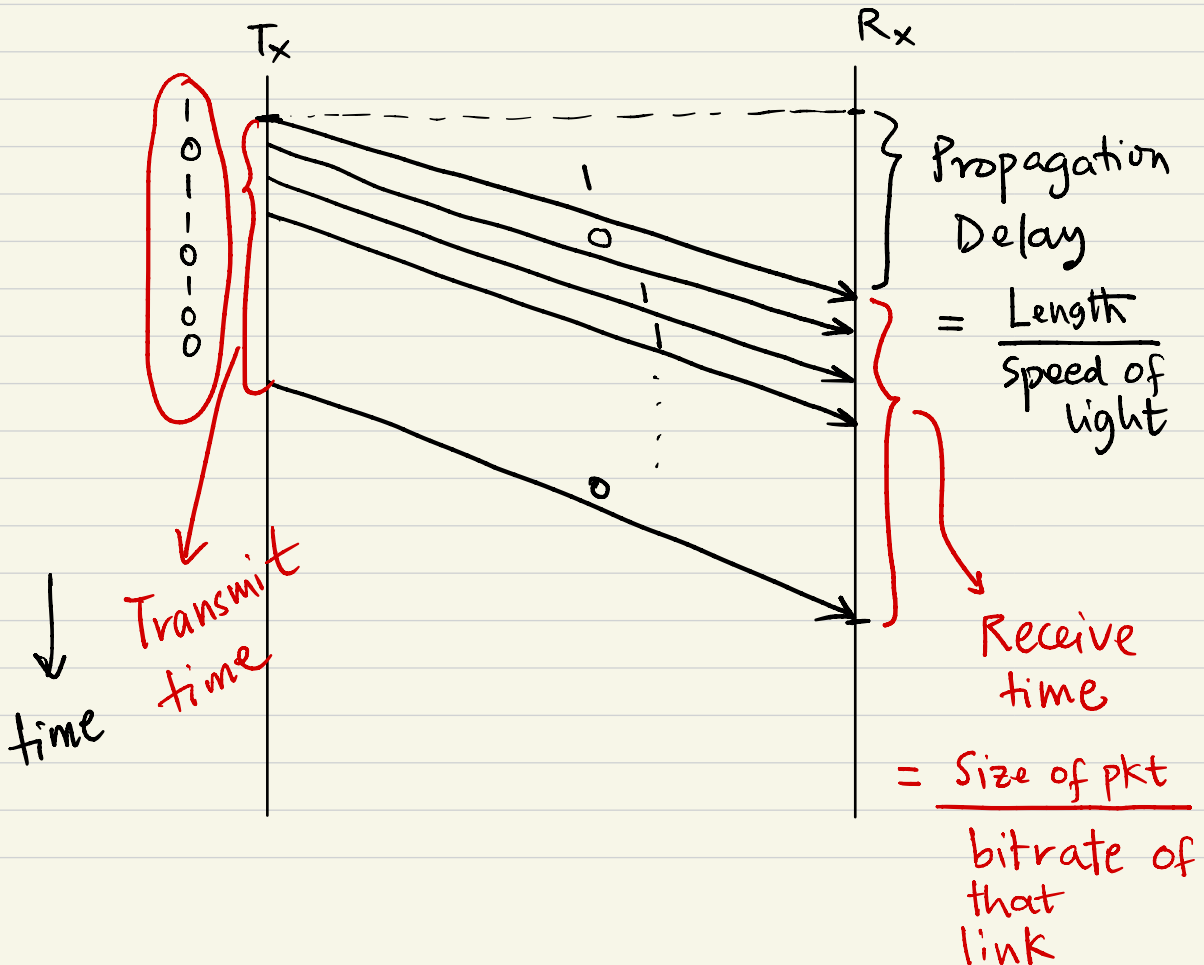 Tx
Rx
1
0
1
1
0
1
0
0
1
0
1
1
0
Propagation
Delay
= Length
Speed of
light
Transmit
time
time
Receive
time
= Size of pkt
bitrate of
that
link